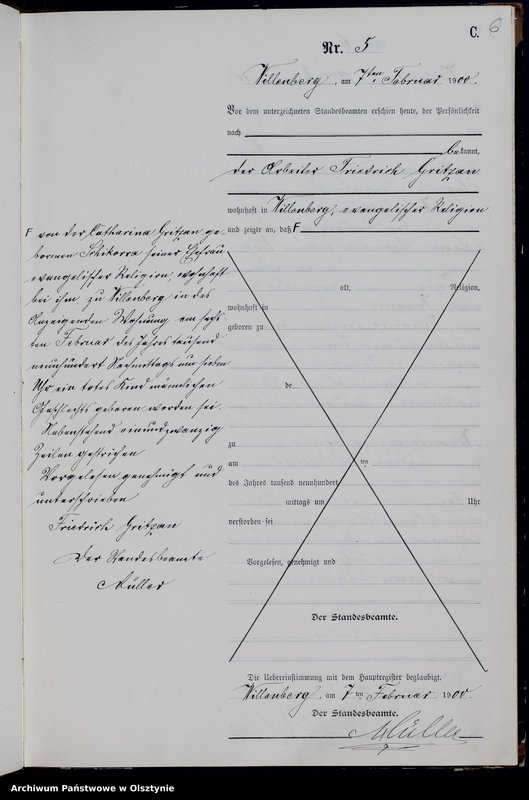 C.
6
Nr. 5
Willenberg, am 7ten Februar 1908.
Vor dem unterzeichneten Standesbeamten erschien heute, der Persönlichkeit
nach
be kannt,
der Arbeiter Friedrich Gritzan
wohnhaft in Willenberg, evangelischer Religion
und zeigte an, daß F
F von der Catharina Gritzan ge-
borenen Schikorra seiner Ehefrau
evangelischer Religion, wohnhaft
bei ihm zu Willenberg in des
Anzeigenden Wohnung am sechs-
ten Februar des Jahres tausend
neunhundert Nachmittags um sieben
Uhr ein totes Kind männlichen
Geschlechts geboren worden sei.
Nebenstehend einundzwanzig
Zeilen gestrichen
Vorgelesen genehmigt und
unterschrieben
Friedrich Gritzan
Der Standesbeamte
Müller
alt, Religion,
wohnhaft in
geboren zu
de
zu
am ten
des Jahres tausend neunhundert
mittags um Uhr
verstorben sei
Vorgelesen, genehmigt und
Der Standesbeamte.
Die Uebereinstimmung mit dem Hauptregister beglaubigt.
Willenberg, am 7ten Februar 1908.
Der Standesbeamte.
Müller
Archiwum Państwowe w Olsztynie